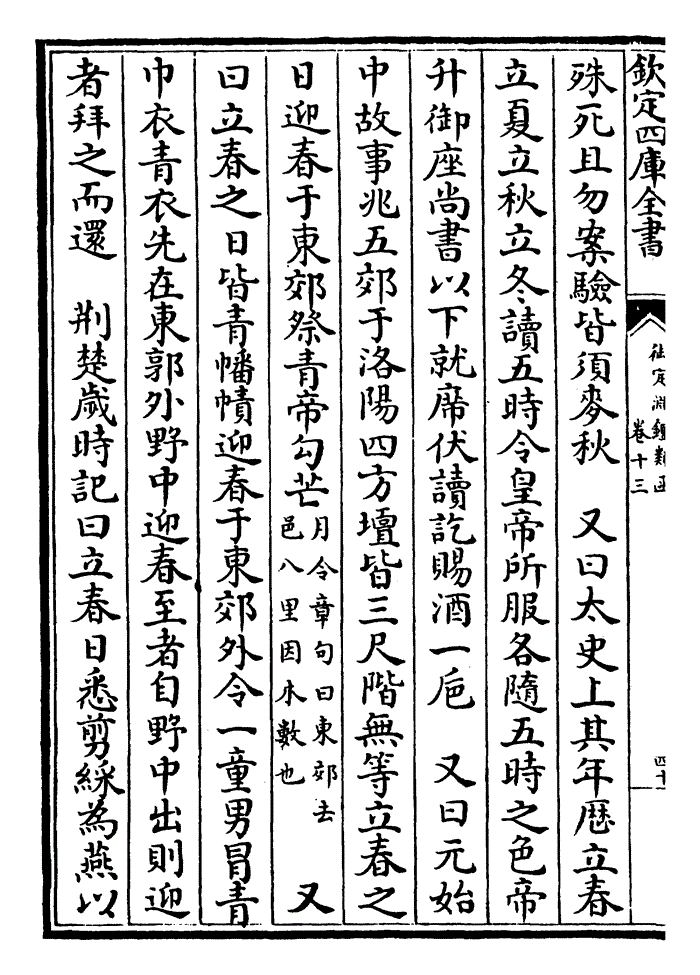 欽定四庫全書
御定淵鑑類函
卷十三
四十
殊死且勿案驗皆須麥秋　又曰太史上其年歴立春
立夏立秋立冬讀五時令皇帝所服各隨五時之色帝
升御座尚書以下就席伏讀訖賜酒一巵　又曰元始
中故事兆五郊于洛陽四方壇皆三尺階無等立春之
日迎春于東郊祭青帝勾芒月令章句曰東郊去
邑八里因木數也　又
曰立春之日皆青幡幘迎春于東郊外令一童男冒青
巾衣青衣先在東郭外野中迎春至者自野中出則迎
者拜之而還　荆楚歲時記曰立春日悉剪綵為燕以